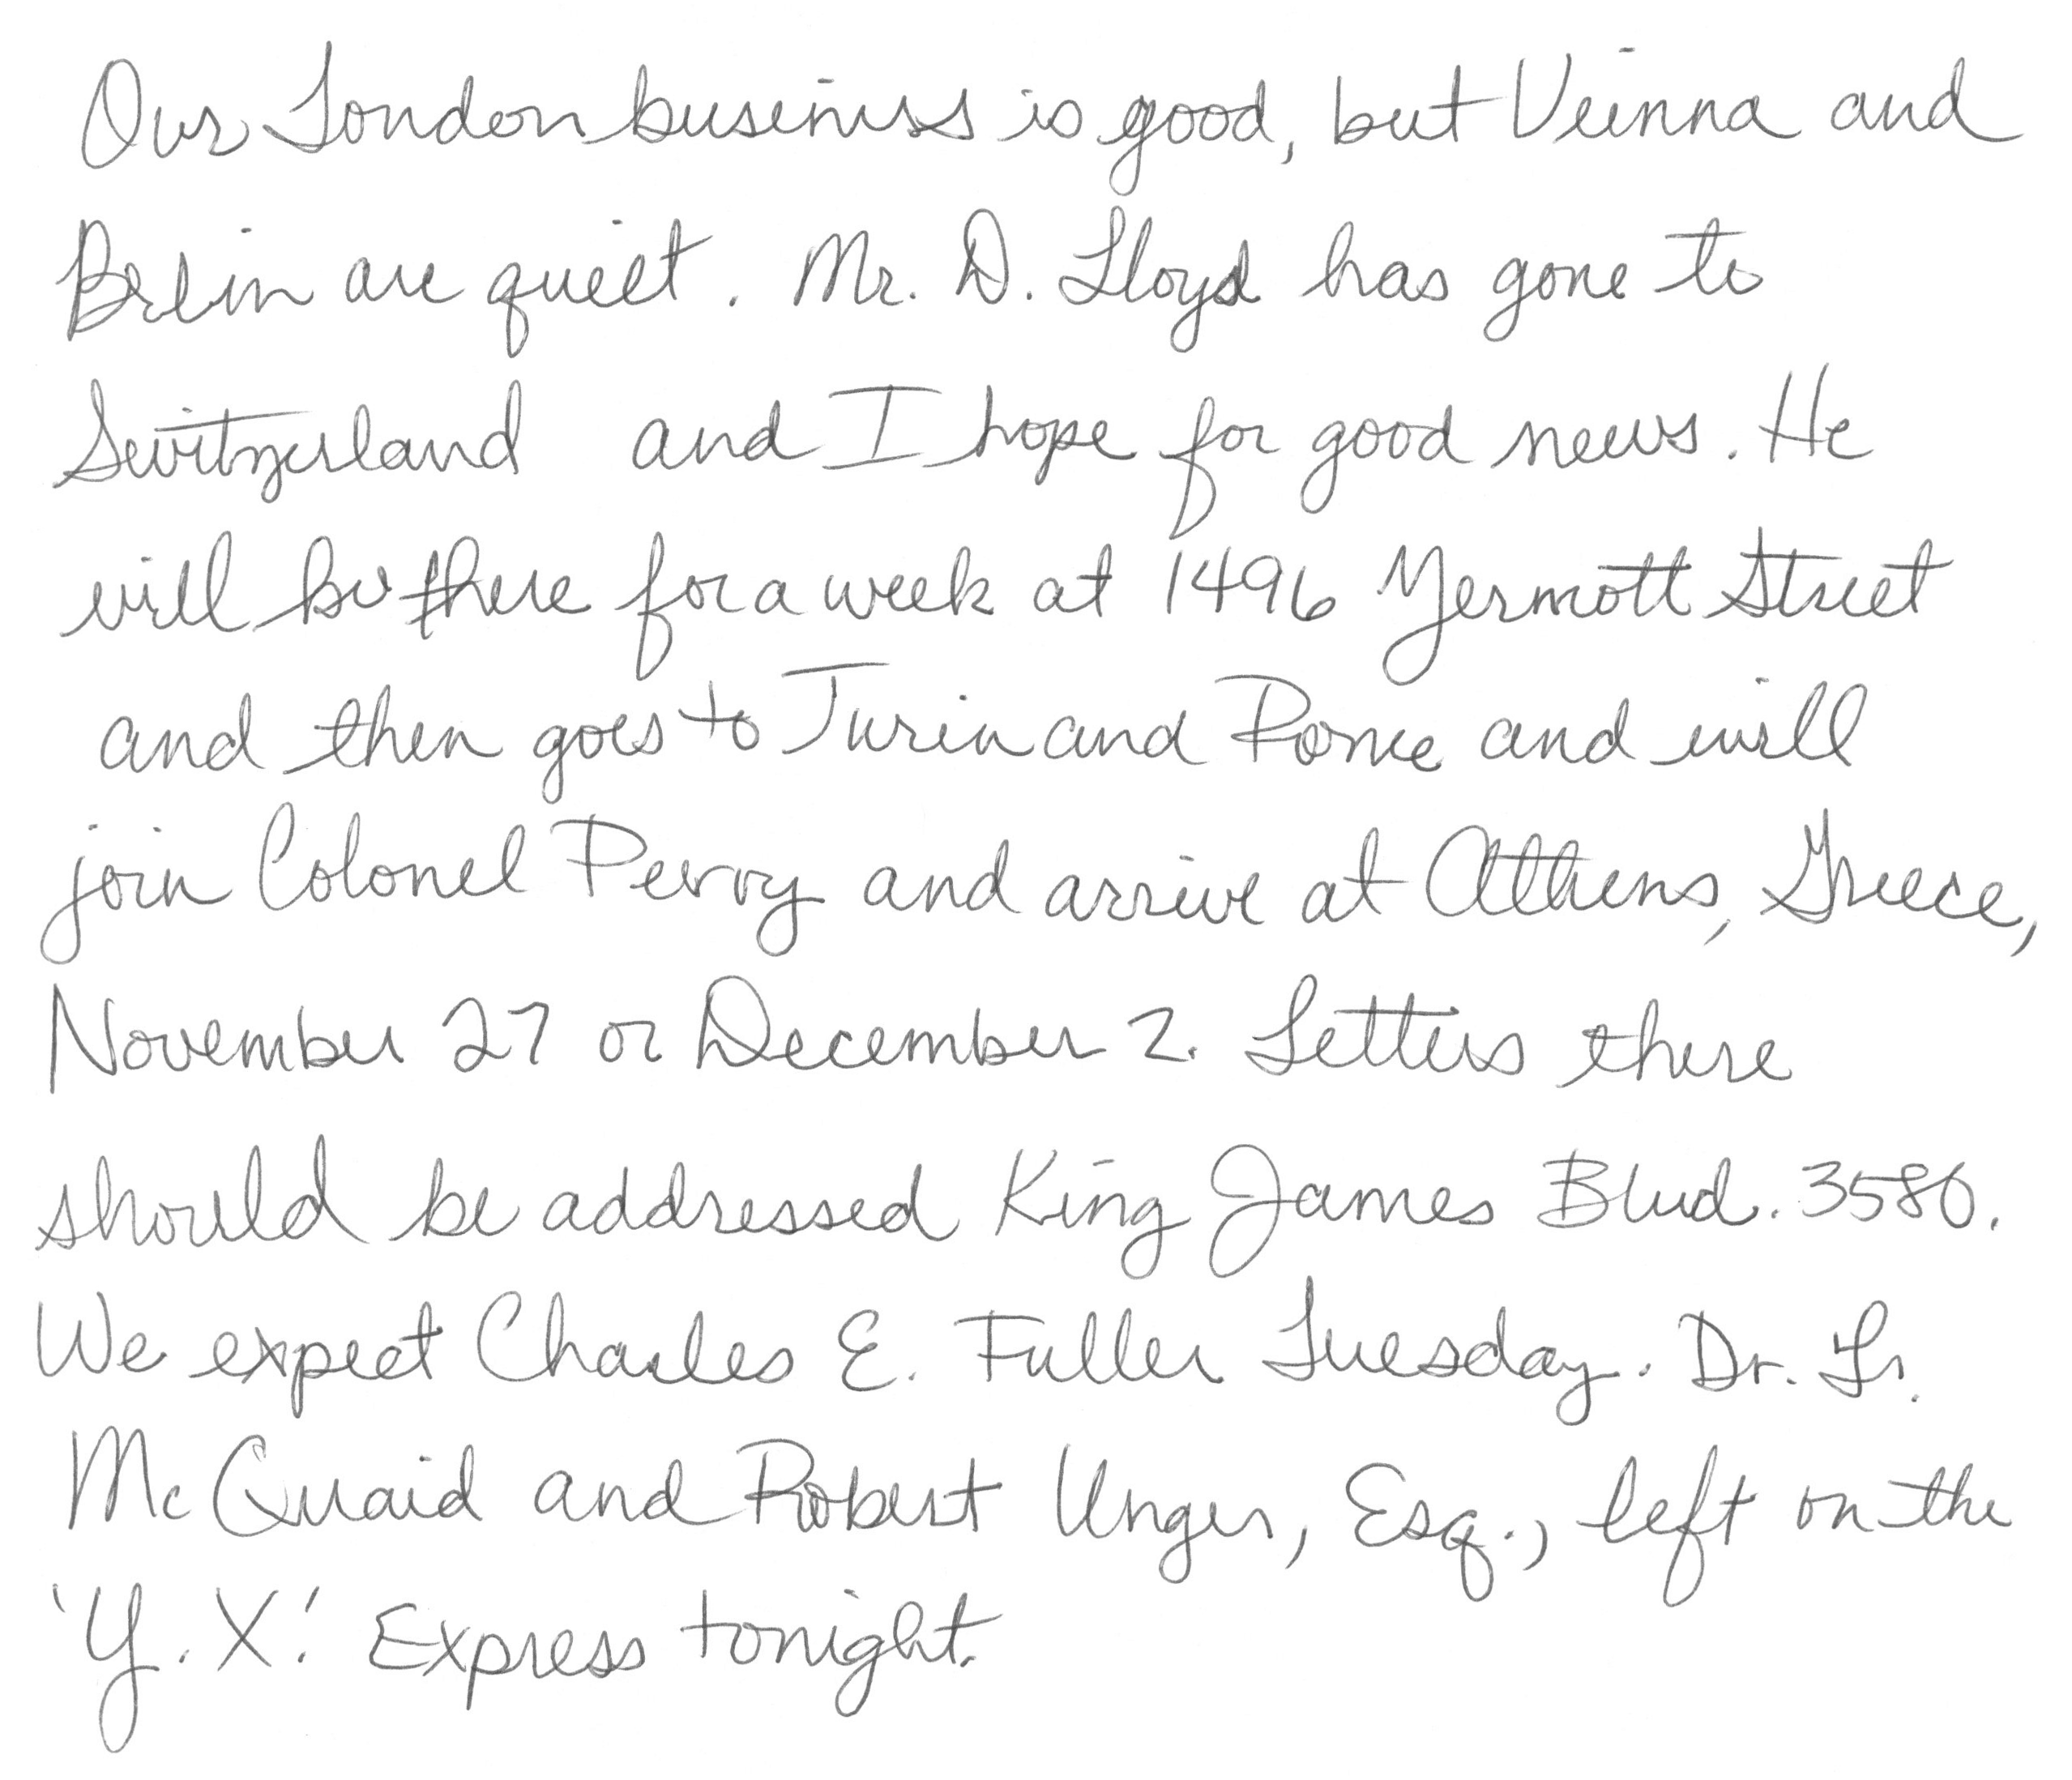 Our London business is good, but Veinna and
Berlin are quiet. Mr. D. Lloyd has gone to
Switzerland and I hope for good news. He
will be there for a week at 1496 Zermott Street
and then goes to Turin and Rome and will
join Colonel Perry and arrive at Athens, Greece,
November 27 or December 2. Letters there
should be addressed King James Blvd. 3580.
We expect Charles E. Fuller Tuesday. Dr. L.
McQuaid and Robert Unger, Esq., left on the
'Y. X.' Express tonight.